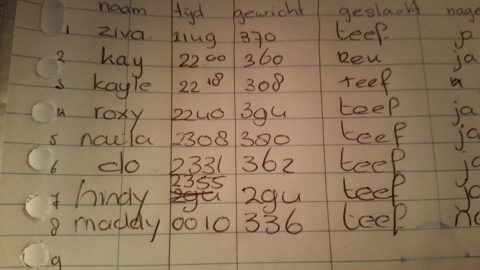 naam tijd gewicht geslacht nage
1 ziva 21ug 370 teef ja
2 kay 2200 360 Reu ja
3 kayle 2218 308 teef
4 roxy 2240 394 teef ja
5 naula 2308 380 teef ja
6 clo 2331 362 teef ja
2355
7 hindy 294 teef ja
8 maddy 0010 336 teef
9